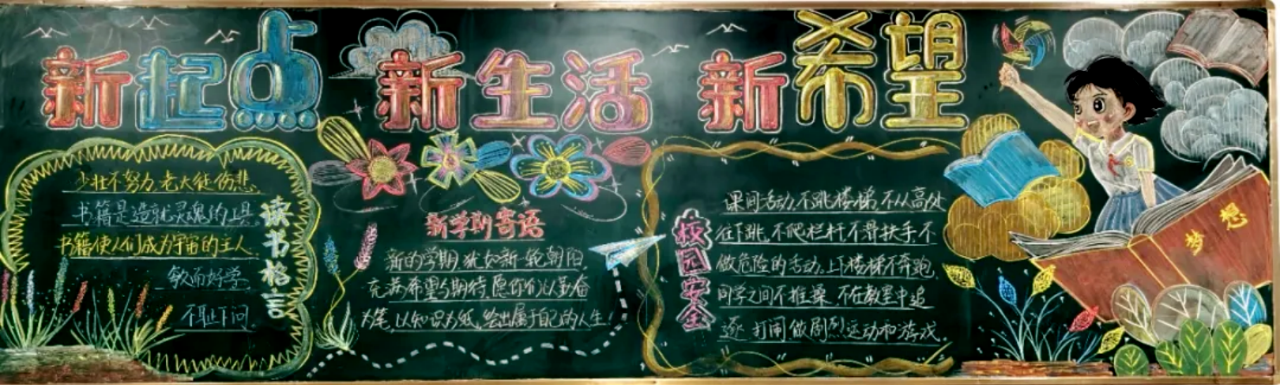 新起点 新生活 新希望
读书格言
少壮不努力,老大徒伤悲
书籍是造就灵魂的工具
书籍使人们成为宇宙的主人
敏而好学
不耻下问
新学期寄语
新的学期,犹如新一轮朝阳,
充满希望与期待,愿你们以勤奋
为笔,以知识为纸,绘出属于自己的人生!
校园安全
课间活动,不跳楼梯,不从高处
往下跳,不爬栏杆,不滑扶手,不
做危险的活动。上楼梯不奔跑,
同学之间不推搡、不在教室中追
逐、打闹、做剧烈运动和游戏。
梦想